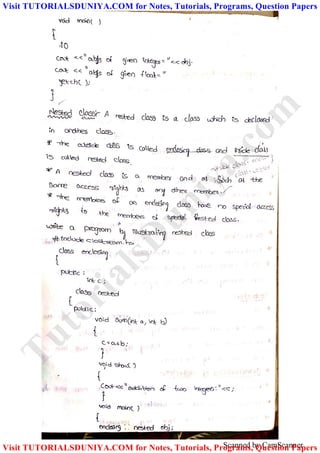 Visit TUTORIALSDUNIYA.COM for Notes, Tutorials, Programs, Question Papers
void main( )
{
cout << "abjs of given Integer=" << obj.
cout << "abjs of given float="
getch( );
}
Nested class:- A nested class is a class which is declared
in another class.
* The outside class is called enclosing class and inside class
is called nested class.
* A nested class is a member and as such at the
same access rights as any other member.
* The members of an enclosing class have no special access
rights to the members of nested class.
write a program illustrating nested class
#include <iostream.h>
class enclosing
{
public:
int c;
class nested
{
public:
void sum(int a, int b)
{
c=a+b;
}
void show( )
{
cout<<"addition of two integers:"<<c;
}
void main( )
{
enclosing :: nested obj;
TutorialsDuniya.com
Scanned by CamScanner
Visit TUTORIALSDUNIYA.COM for Notes, Tutorials, Programs, Question Papers